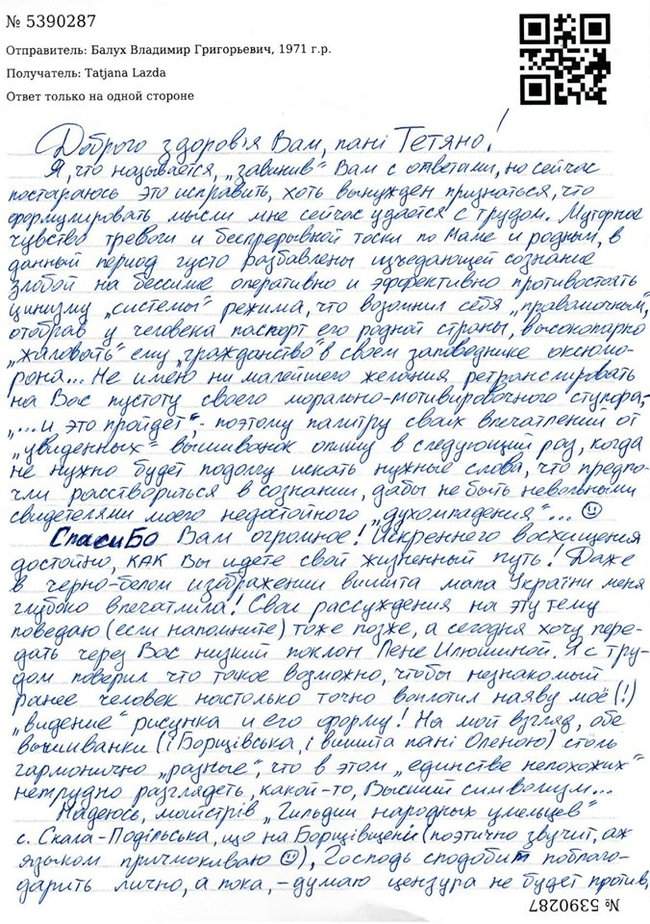 № 5390287
Отправитель: Балух Владимир Григорьевич, 1971 г.р.
Получатель: Tatjana Lazda
Ответ только на одной стороне
Доброго здоров'я Вам, пані Тетяно!
Я, что называется, „завинив" Вам с ответами, но сейчас
постараюсь это исправить, хоть вынужден признаться, что
формулировать мысли мне сейчас удаётся с трудом. Муторное
чувство тревоги и беспрерывной тоски по Маме и родным, в
данный период густо разбавлены изъедающей сознание
злобой на бессилие оперативно и эффективно противостоять
цинизму „системы" режима, что возомнил себя „правомочным",
отобрав у человека паспорт его родной страны, высокопарно
„жаловать" ему „гражданство" в своём заповеднике оксюмо-
рона... Не имею ни малейшего желания ретранслировать
на Вас пустоту своего морально-мотивировочного ступора,-
„...и это пройдёт",- поэтому палитру своих впечатлений от
„увиденных" вышиванок опишу в следующий раз, когда
не нужно будет подолгу искать нужные слова, что предпо-
чли расствориться в сознании, дабы не быть невольными
свидетелями моего недостойного „духомпадения"... ☺
Спасибо Вам огромное! Искреннего восхищения
достойно, КАК Вы идёте свой жизненный путь! Даже
в черно-белом изображении вишита мапа України меня
глубоко впечатлила! Свои рассуждения на эту тему
поведаю (если напомните) тоже позже, а сегодня хочу пере-
дать через Вас низкий поклон Лене Илюшиной. Я с тру-
дом поверил что такое возможно, чтобы незнакомый
ранее человек настолько точно воплотил наяву моё (!)
„видение" рисунка и его форму! На мой взгляд, обе
вышиванки (і Борщівська, і вишита пані Оленою) столь
гармонично „разные", что в этом „единстве непохожих"
нетрудно разглядеть, какой-то, Высший символизм...
Надеюсь, майстрів „Гильдии народных умельцев"
с. Скала-Подільська, що на Борщівщені (поэтично звучит, аж
языком причмокиваю ☺), Господь сподобит поблаго-
дарить лично, а пока,- думаю цензура не будет против,
№ 5390287